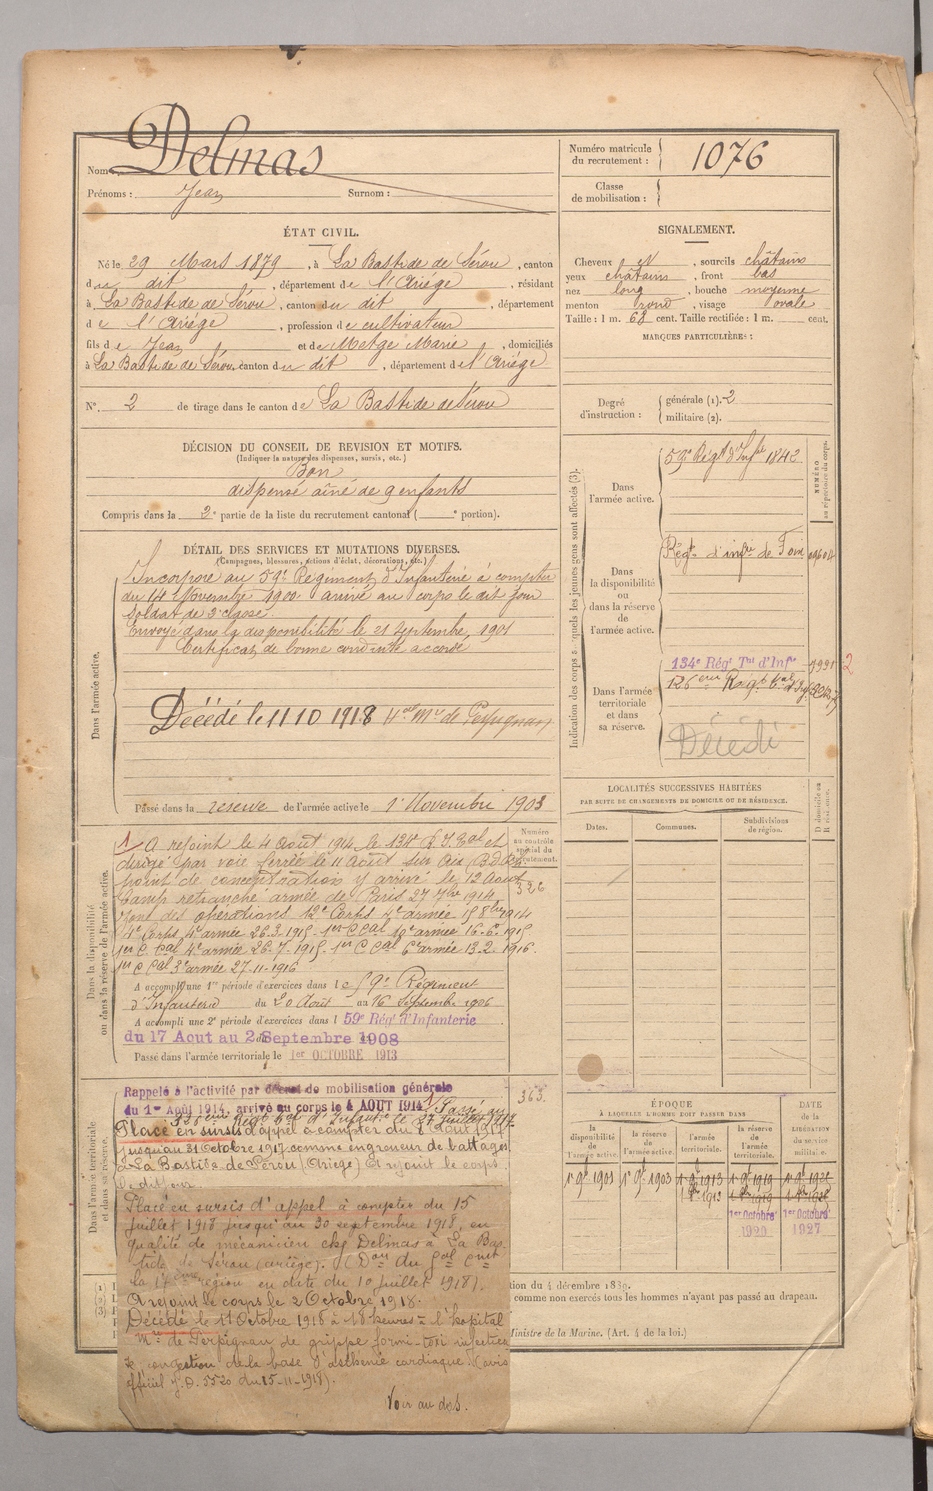 Nom : Delmas
Prénoms : Jean Surnom :
Numéro matricule
du recrutement : 1076
Classe
de mobilisation :
ÉTAT CIVIL.
Né le 29 Mars 1879, à La Bastide de Sérou, canton
du dit, département de l'Ariège, résidant
à La Bastide de Sérou, canton du dit, département
de l'Ariège, profession de cultivateur
fils de Jean et de Metge Marie, domiciliés
à La Bastide de Sérou, canton du dit, département de l'Ariège
N° 2 de tirage dans le canton de La Bastide de Sérou
SIGNALEMENT.
Cheveux et, sourcils châtains
yeux châtains, front bas
nez long, bouche moyenne
menton rond, visage ovale
Taille : 1 m. 68 cent. Taille rectifiée : 1 m. cent.
MARQUES PARTICULIÈRES :
Degré
d'instruction :
générale (1). 2
militaire (2).
DÉCISION DU CONSEIL DE REVISION ET MOTIFS.
(Indiquer la nature des dispenses, sursis, etc.)
Bon
dispensé aîné de 9 enfants
Compris dans la 2e partie de la liste du recrutement cantonal ( e portion).
DÉTAIL DES SERVICES ET MUTATIONS DIVERSES.
(Campagnes, blessures, actions d'éclat, décorations, etc.)
Dans l'armée active.
Incorporé au 59e Régiment d'Infanterie à compter
du 14 Novembre 1900 arrivé au corps le dit jour
Soldat de 2e classe.
Envoyé dans la disponibilité le 21 Septembre 1901
Certificat de bonne conduite accordé
Décédé le 11 10 1918 Hal Mre de Perpignan
Passé dans la réserve de l'armée active le 1er Novembre 1903
Indication des corps auxquels les jeunes gens sont affectés (3).
NUMÉRO
au répertoire du corps.
Dans
l'armée active.
59e Régt d'Infie 1842
Dans
la disponibilité
ou
dans la réserve
de
l'armée active.
Régt d'infie de Foix
Dans l'armée
territoriale
et dans
sa réserve.
134e Régt Tal d'Infie 1991 2
Décédé
LOCALITÉS SUCCESSIVES HABITÉES
PAR SUITE DE CHANGEMENTS DE DOMICILE OU DE RÉSIDENCE.
Dates. Communes. Subdivisions
de région. D domicile ou
R résidence.
Dans la disponibilité
ou dans la réserve de l'armée active.
Numéro
au contrôle
spécial du
recrutement.
326
A rejoint le 4 Août 1914 le 134e R.I.Tal et
dirigé par voie ferrée le 11 Août sur
point de concentration y arrivé le 12 Août
Camp retranché armée de Paris 27 7bre 1914
Zone des opérations 12e Corps 4e armée 15 8bre 1914
4e Corps 4e armée 26.3.1915. 1er C Cal 10e armée 16-6-1915
1er C Cal 4e armée 26.7.1915. 1er C Cal 6e armée 13.2.1916
1er C Cal 3e armée 27.11.1916
A accompli une 1re période d'exercices dans le 59e Régiment
d'Infanterie du 20 Août au 16 Septembre 1906
A accompli une 2e période d'exercices dans l 59e Régt d'Infanterie
du 17 Aout au 2 Septembre 1908
Passé dans l'armée territoriale le 1er OCTOBRE 1913
Dans l'armée territoriale
et dans sa réserve.
363
Rappelé à l'activité par décret de mobilisation générale
du 1er Août 1914, arrivé au corps le 4 AOUT 1914 Passé au
Placé en sursis d'appel à compter du
jusqu'au 31 Octobre 1917 comme engreneur de battages
à La Bastide de Sérou (Ariège) et rejoint le corps
le dit jour.
Placé en sursis d'appel à compter du 15
Juillet 1918 jusqu'au 30 septembre 1918, en
qualité de mécanicien chez Delmas à La Bas-
tide de Sérou (ariège). (Don du Gal Cmt
la 17ème région en date du 10 juillet 1918).
A rejoint le corps le 2 Octobre 1918.
Décédé le 11 Octobre 1918 à 18 heures à l'hôpital
Mre de Perpignan de grippe forme toxi infectieuse
congestion de la base d'asthénie cardiaque. (avis
officiel J.D. 5520 du 15-11-1918).
Voir au dos.
ÉPOQUE
À LAQUELLE L'HOMME DOIT PASSER DANS
DATE
de la
LIBÉRATION
du service
militaire.
la
disponibilité
de
l'armée active.
la réserve
de
l'armée active.
l'armée
territoriale.
la réserve
de
l'armée
territoriale.
1er 9bre 1901 1er 9bre 1903 1er 9bre 1913 1er 9bre 1919
1er Octobre
1920
1er Octobre
1927
tion du 4 décembre 1889.
comme non exercés tous les hommes n'ayant pas passé au drapeau.
Ministre de la Marine. (Art. 4 de la loi.)